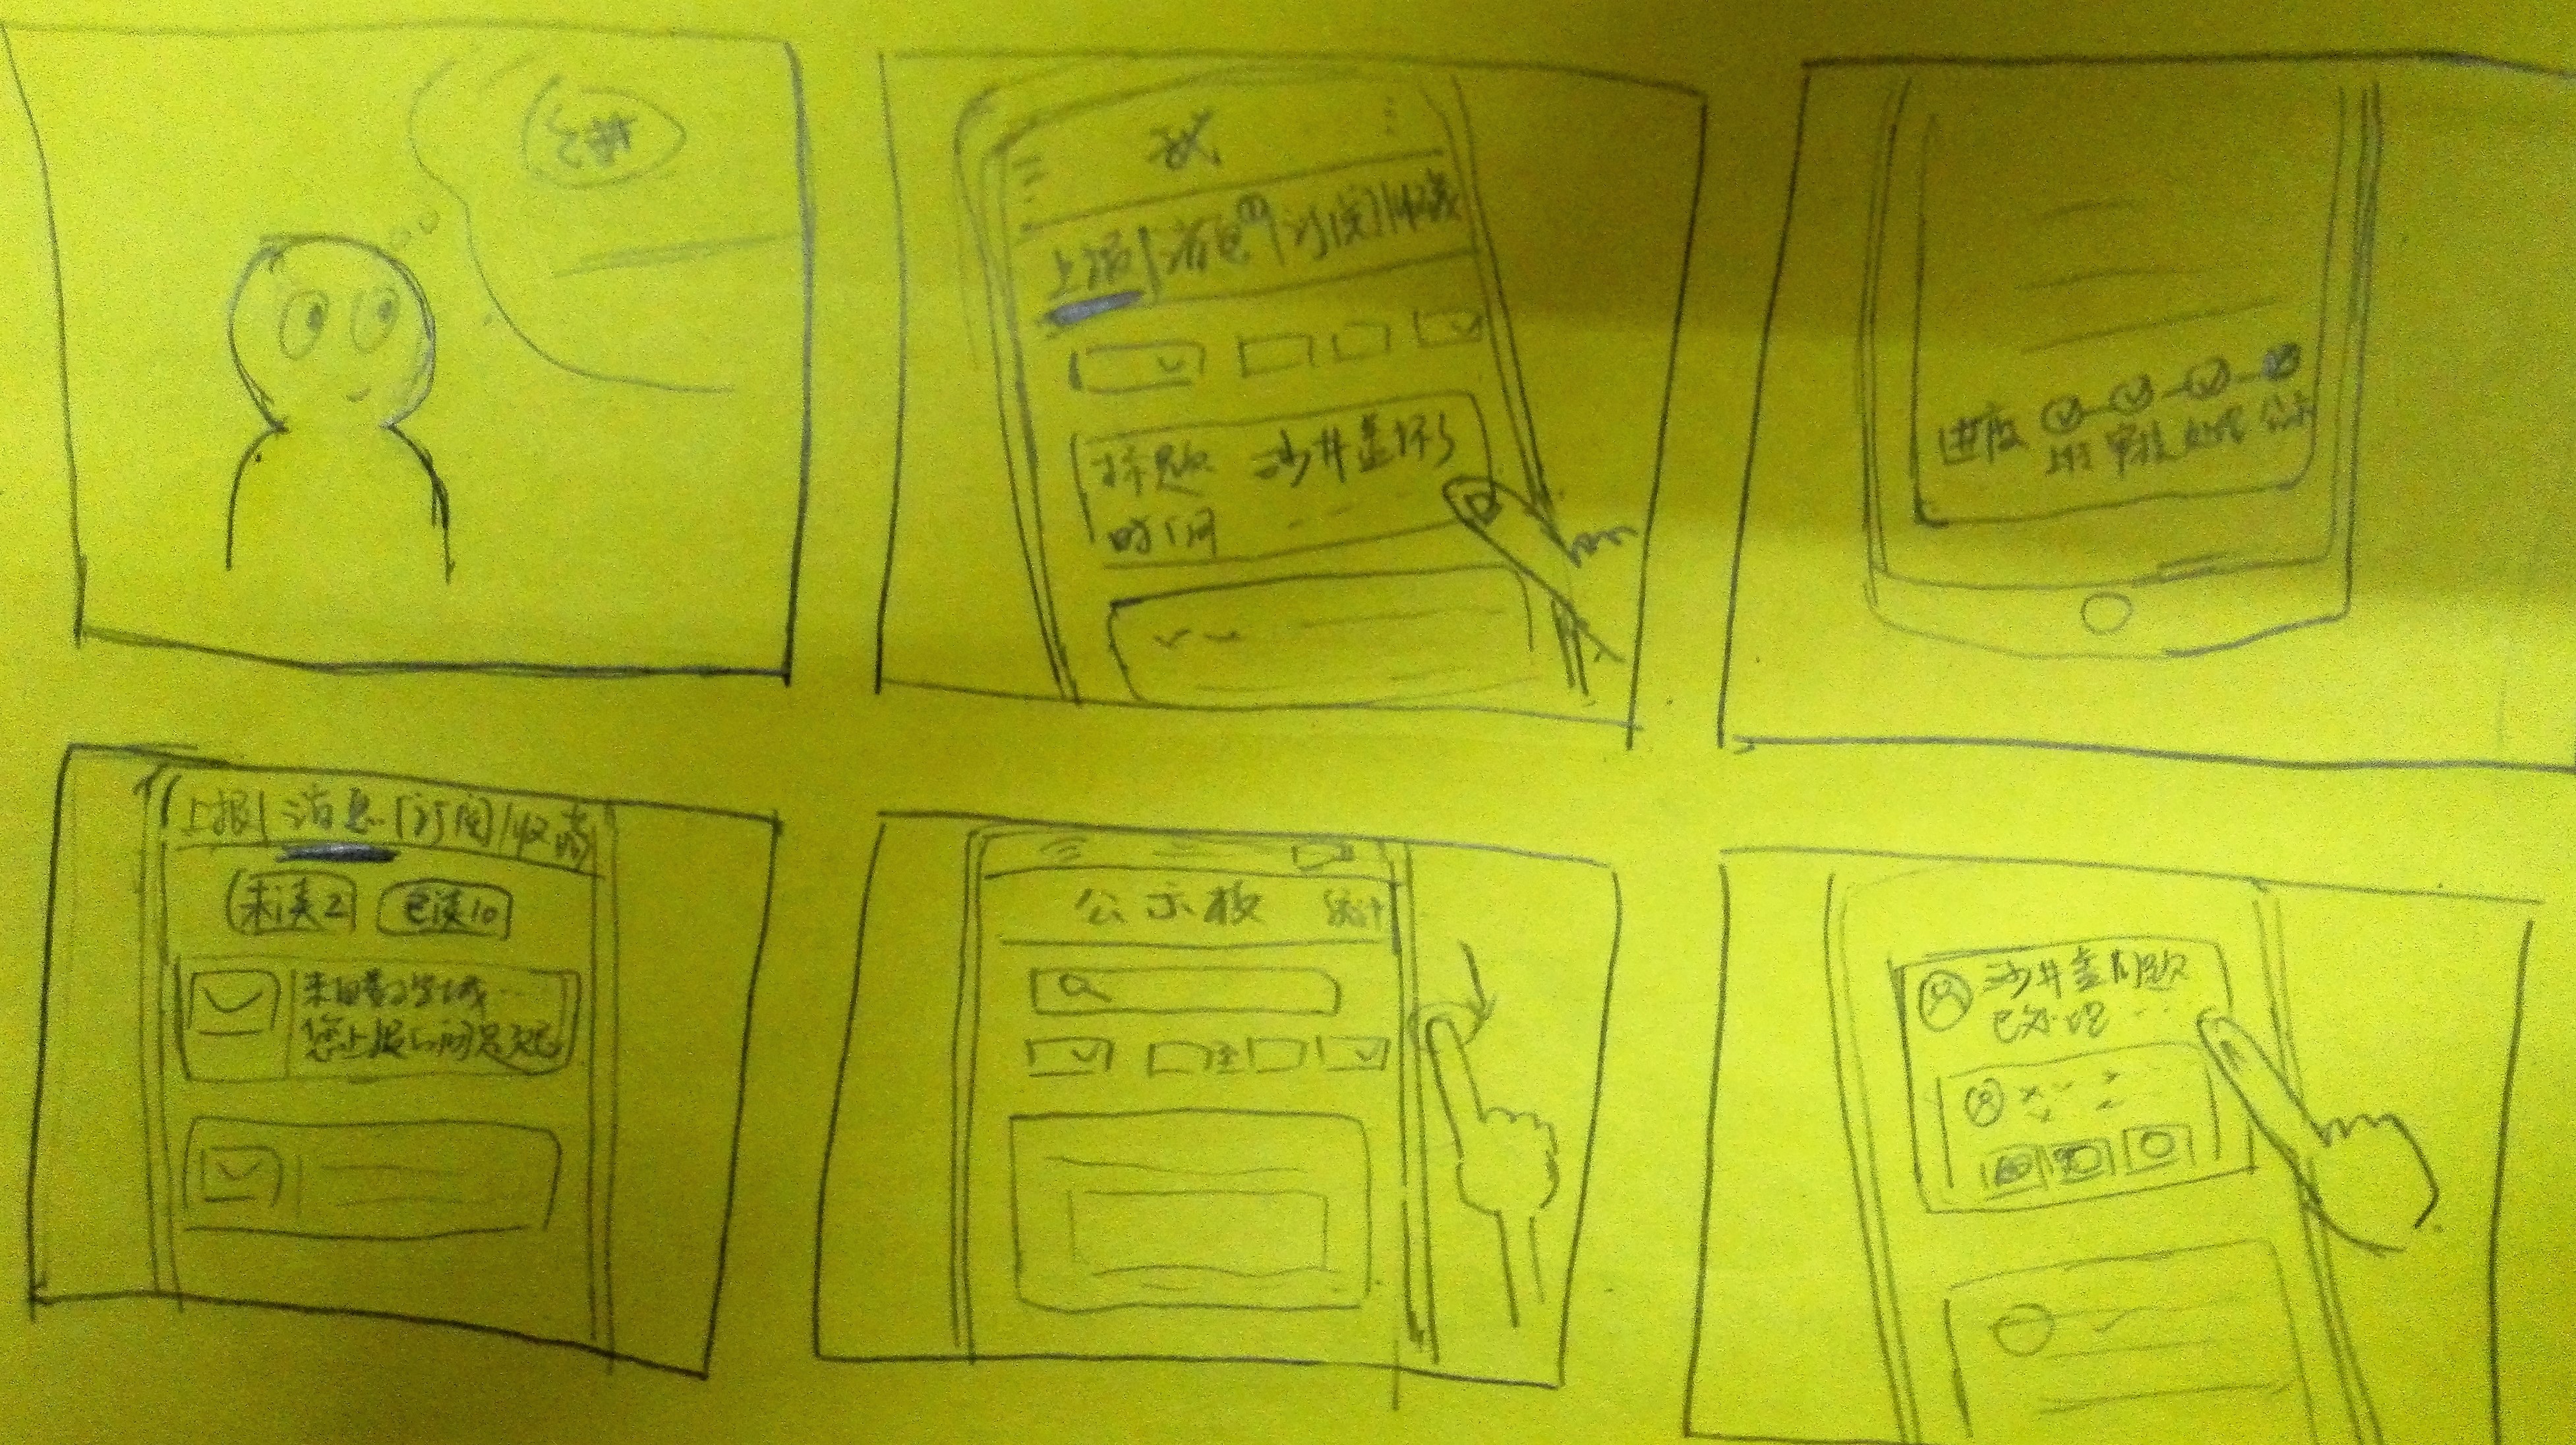 我
上报|消息|订阅|收藏
标题 沙井盖坏了
时间
进度
上报 审核 处理 公示
上报|消息|订阅|收藏
未读2 已读10
您上报的问题已
公示板 统计
至
沙井盖问题
已处理